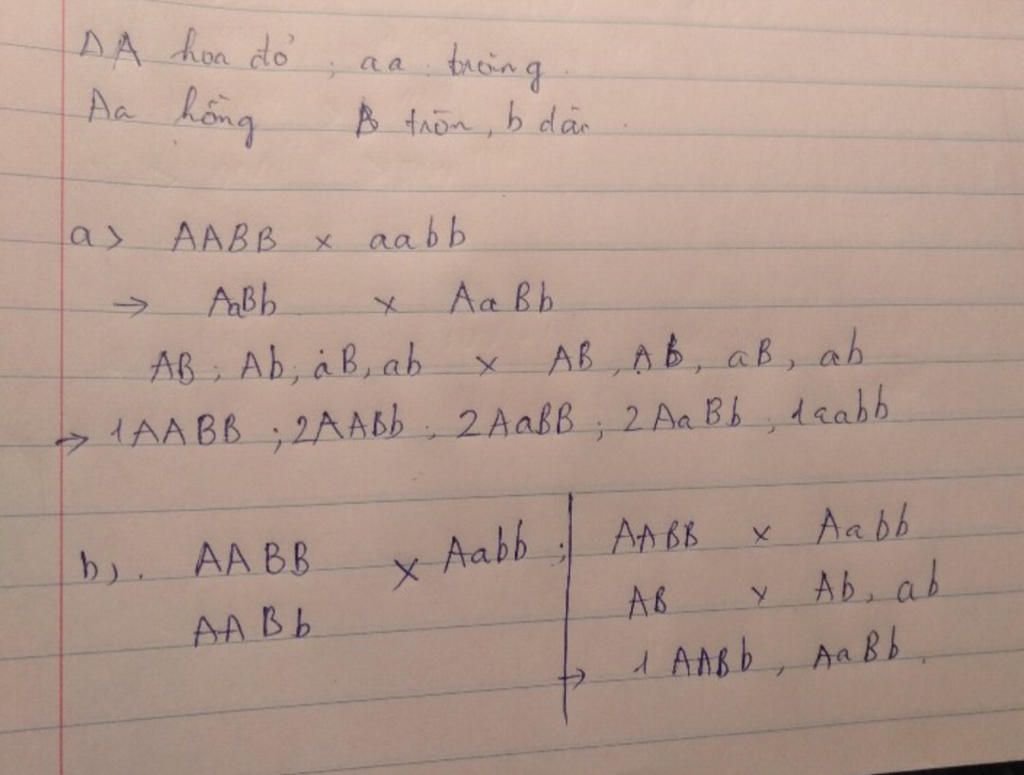 AA hoa đỏ ; aa : trắng.
Aa hồng B tròn, b dài.
a> AABB x aabb
→ AaBb x AaBb
AB ; Ab ; aB, ab x AB, Ab, aB, ab
→ 1AABB ; 2AABb ; 2AaBB ; 2AaBb ; 1aabb
b). AABB x Aabb ;
AABb
AABB x Aabb
AB x Ab, ab
→ 1 AABb, AaBb.